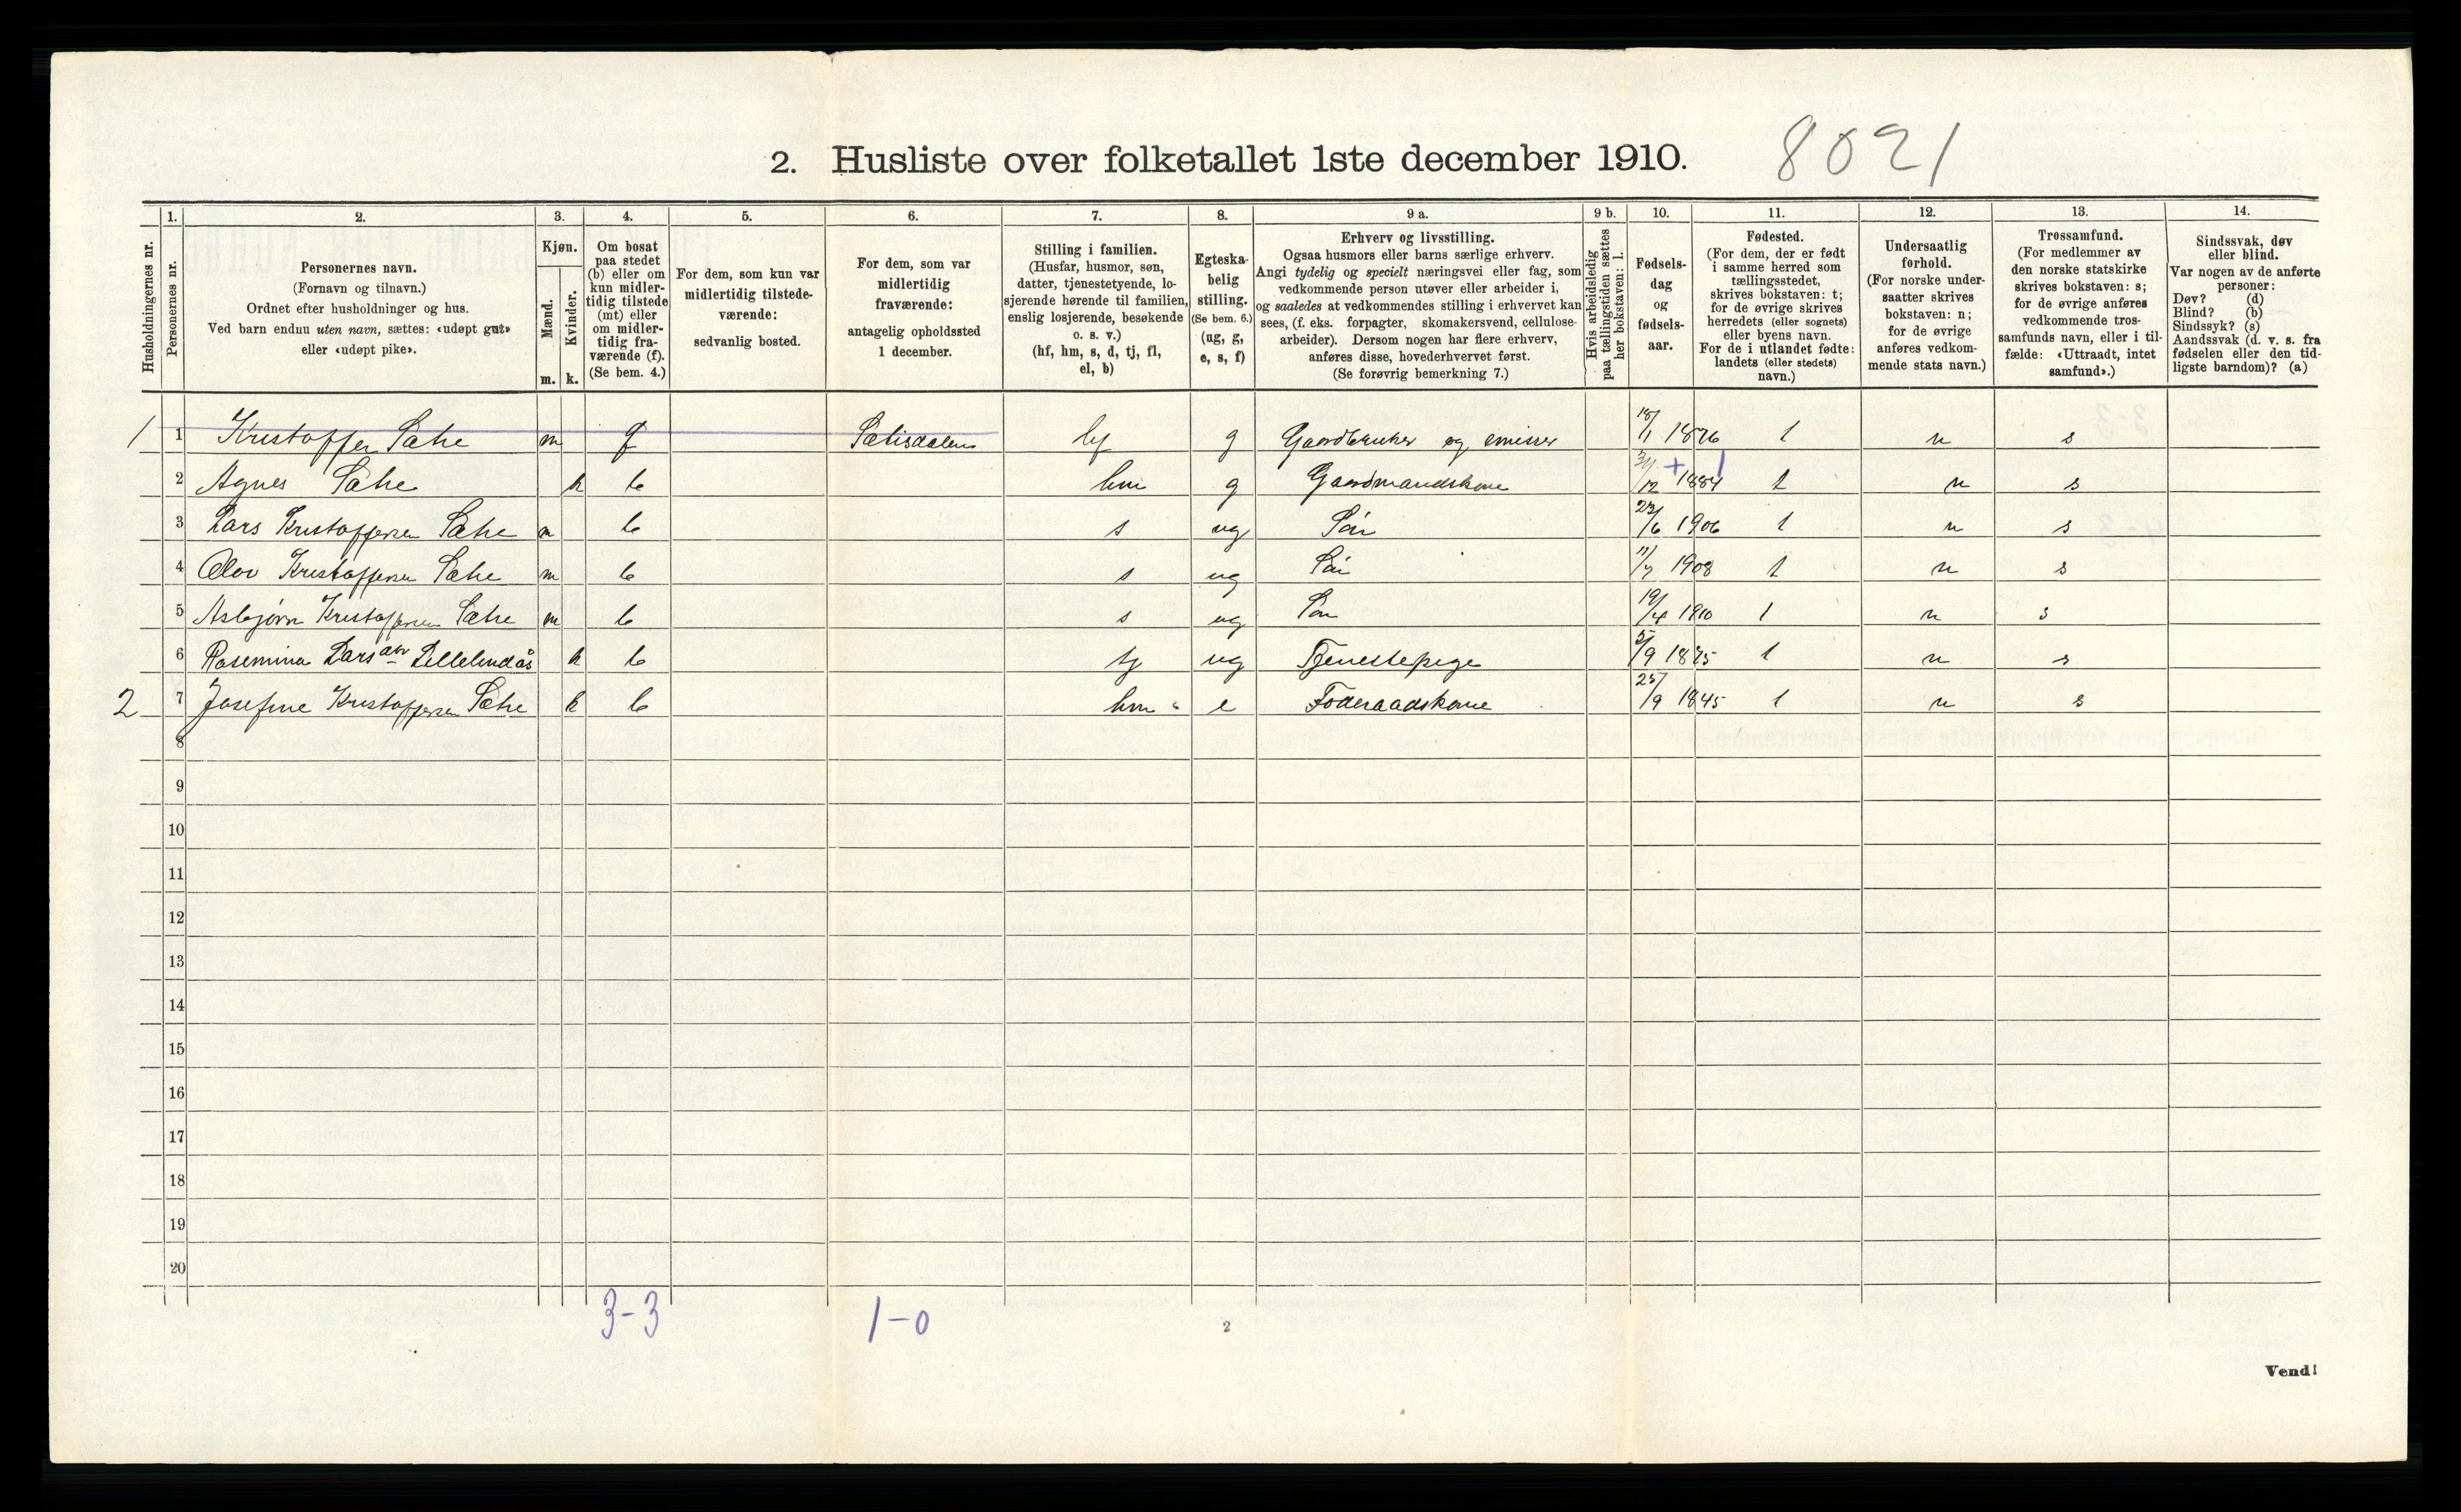 2. Husliste over folketallet 1ste december 1910. 8021
Husholdningernes nr.
1.
Personernes nr.
2.
Personernes navn.
(Fornavn og tilnavn.)
Ordnet efter husholdninger og hus.
Ved barn endnu uten navn, sættes: «udøpt gut»
eller «udøpt pike».
3.
Kjøn.
Mænd.
Kvinder.
m. k.
4.
Om bosat
paa stedet
(b) eller om
kun midler-
tidig tilstede
(mt) eller
om midler-
tidig fra-
værende (f).
(Se bem. 4.)
5.
For dem, som kun var
midlertidig tilstede-
værende:
sedvanlig bosted.
6.
For dem, som var
midlertidig
fraværende:
antagelig opholdssted
1 december.
7.
Stilling i familien.
(Husfar, husmor, søn,
datter, tjenestetyende, lo-
sjerende hørende til familien,
enslig losjerende, besøkende
o. s. v.)
(hf, hm, s, d, tj, fl,
el, b)
8.
Egteska-
belig
stilling.
(Se bem. 6.)
(ug, g,
e, s, f)
9 a.
Erhverv og livsstilling.
Ogsaa husmors eller barns særlige erhverv.
Angi tydelig og specielt næringsvei eller fag, som
vedkommende person utøver eller arbeider i,
og saaledes at vedkommendes stilling i erhvervet kan
sees, (f. eks. forpagter, skomakersvend, cellulose-
arbeider). Dersom nogen har flere erhverv,
anføres disse, hovederhvervet først.
(Se forøvrig bemerkning 7.)
9 b.
Hvis arbeidsledig
paa tællingstiden sættes
her bokstaven: l.
10.
Fødsels-
dag
og
fødsels-
aar.
11.
Fødested.
(For dem, der er født
i samme herred som
tællingsstedet,
skrives bokstaven: t;
for de øvrige skrives
herredets (eller sognets)
eller byens navn.
For de i utlandet fødte:
landets (eller stedets)
navn.)
12.
Undersaatlig
forhold.
(For norske under-
saatter skrives
bokstaven: n;
for de øvrige
anføres vedkom-
mende stats navn.)
13.
Trossamfund.
(For medlemmer av
den norske statskirke
skrives bokstaven: s;
for de øvrige anføres
vedkommende tros-
samfunds navn, eller i til-
fælde: «Uttraadt, intet
samfund».)
14.
Sindssvak, døv
eller blind.
Var nogen av de anførte
personer:
Døv? (d)
Blind? (b)
Sindssyk? (s)
Aandssvak (d. v. s. fra
fødselen eller den tid-
ligste barndom)? (a)
1 1 Kristoffer Sætre m f Sætisdalen hf g Gaardbruker og emissær 1876 t n s
2 Agnes Sætre k b hm g Gaardmandskone 1884 t n s
3 Lars Kristoffersen Sætre m b s ug Søn 23/6 1906 t n s
4 Olav Kristoffersen Sætre m b s ug Søn 11/7 1908 t n s
5 Asbjørn Kristoffersen Sætre m b s ug Søn 19/4 1910 t n s
6 Rasmina Larsdtr Lillelindås k b tj ug Tjenestepige 5/9 1875 t n s
2 7 Josefine Kristoffersen Sætre k b hm e Føderaadskone 25/9 1845 t n s
8
9
10
11
12
13
14
15
16
17
18
19
20
3-3 1-0
2
Vend!